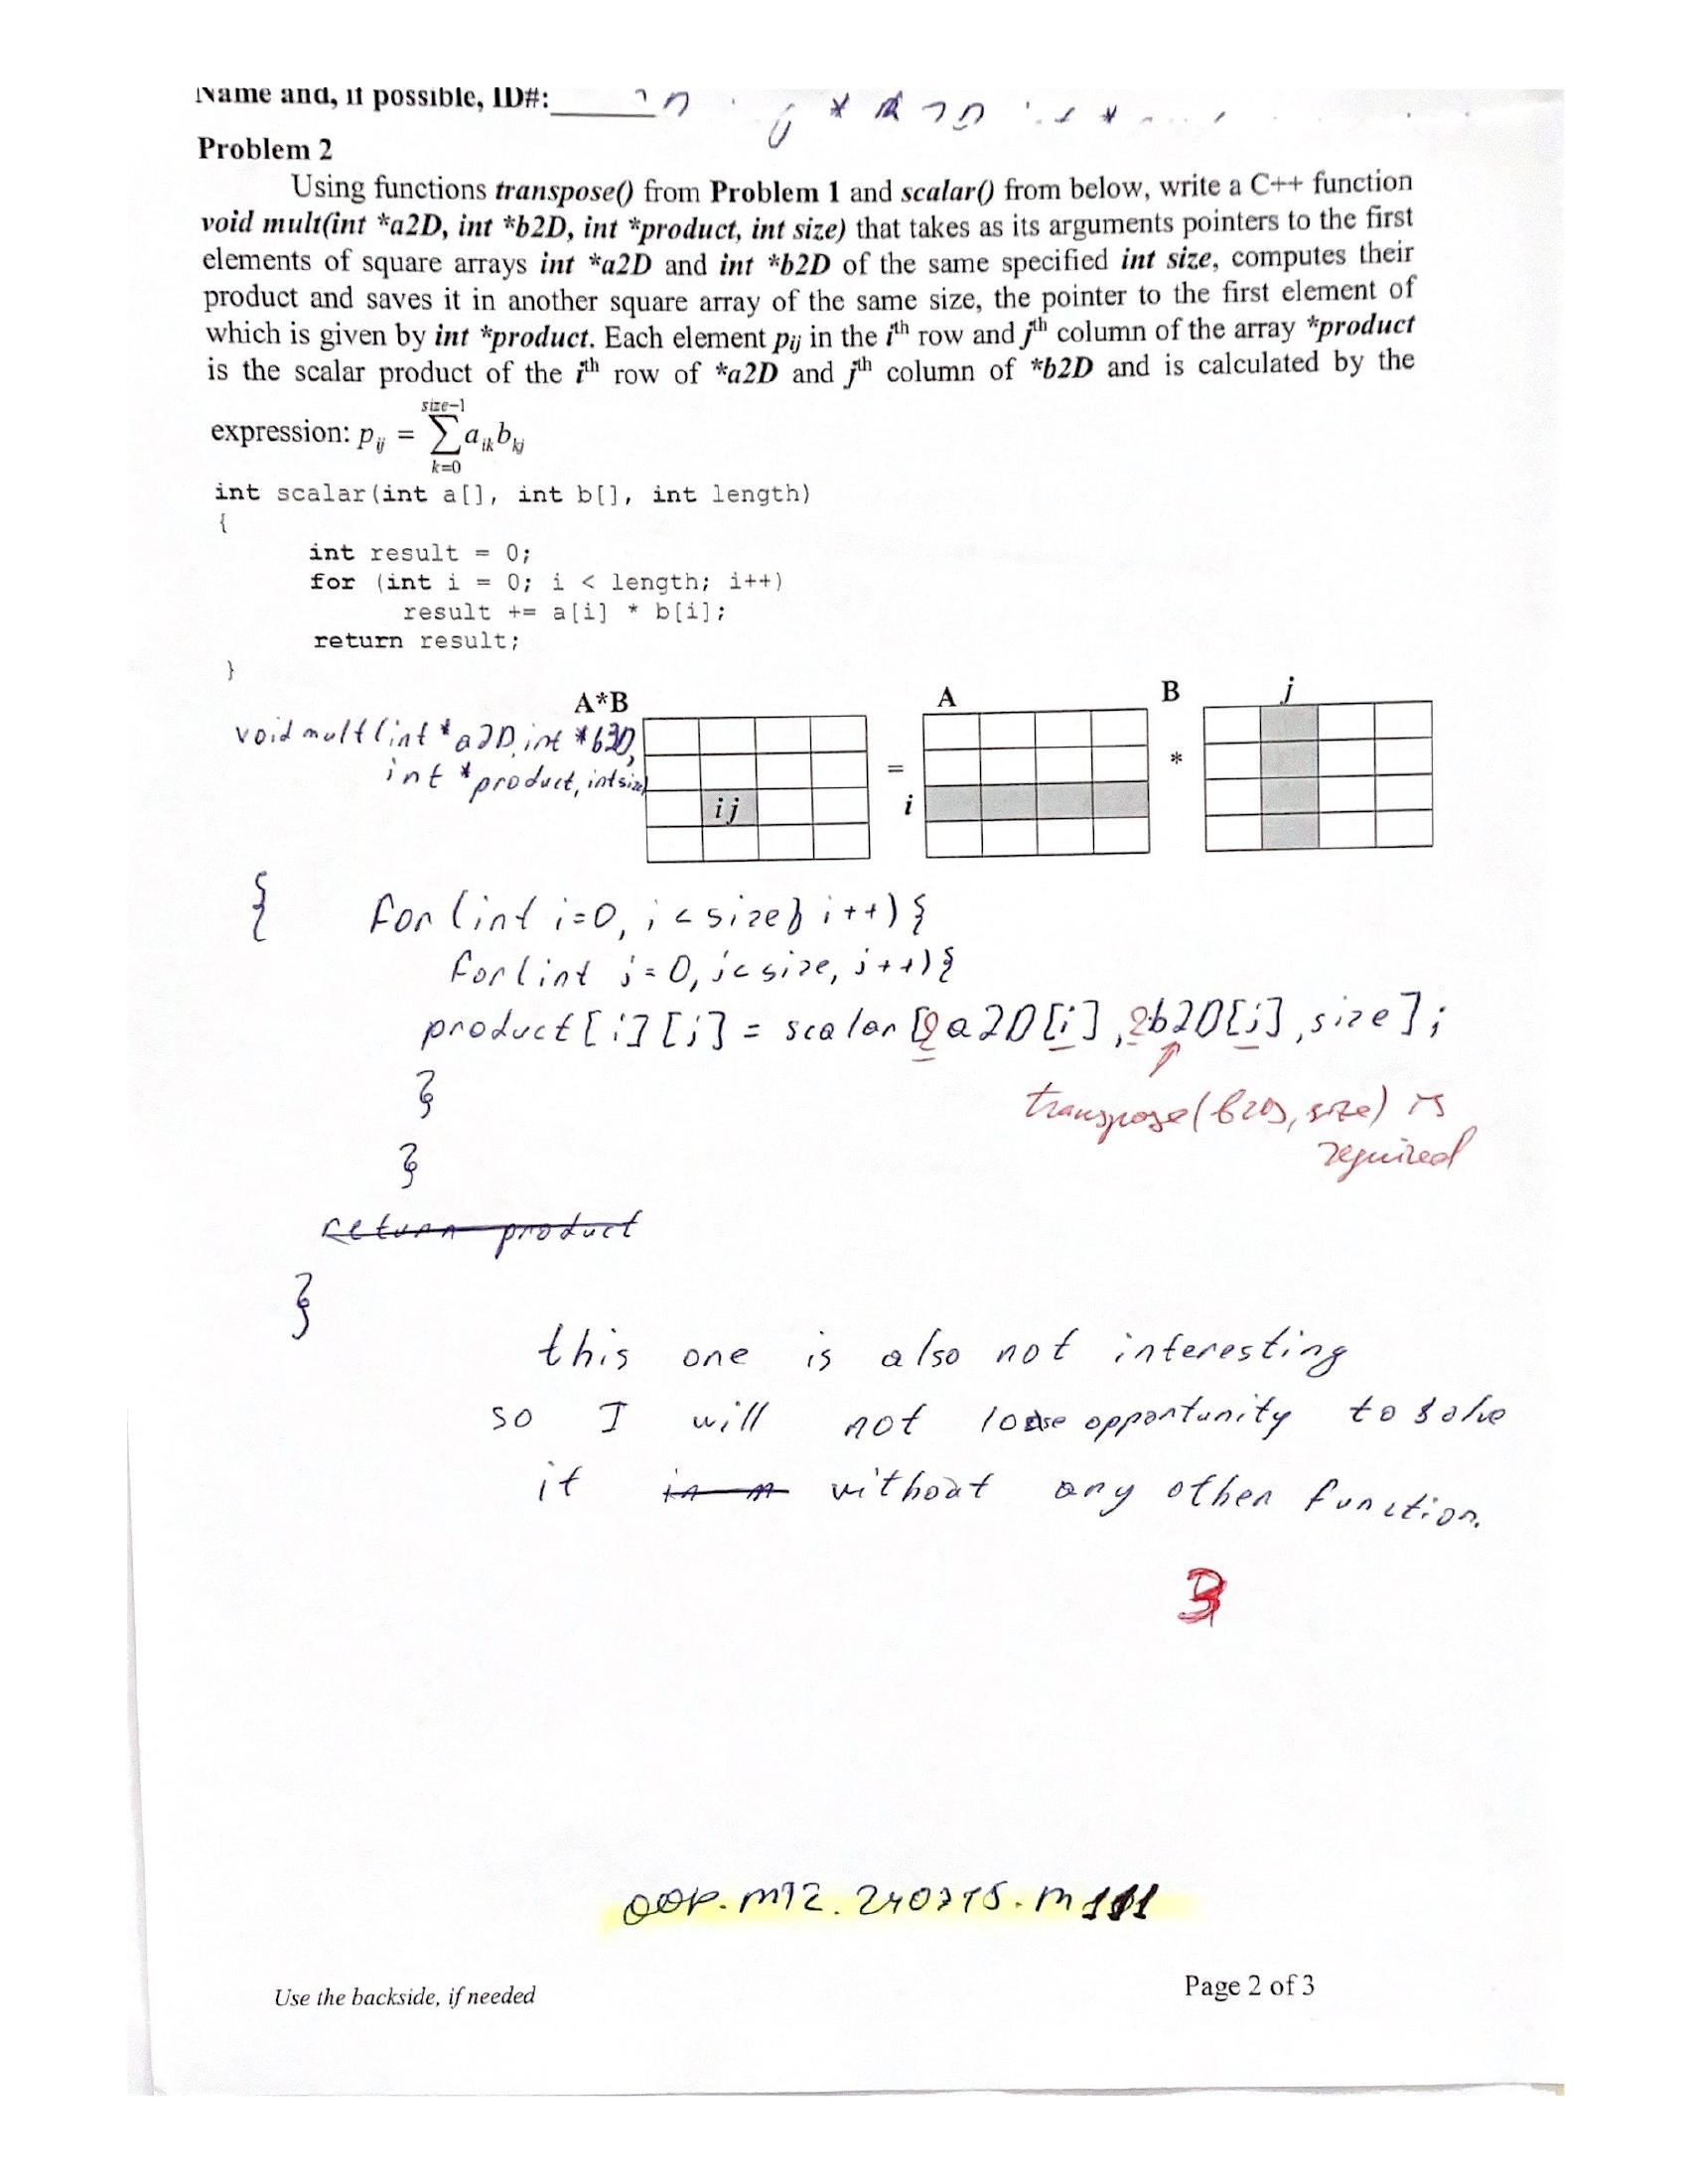 Name and, if possible, ID#:
Problem 2
Using functions transpose() from Problem 1 and scalar() from below, write a C++ function
void mult(int *a2D, int *b2D, int *product, int size) that takes as its arguments pointers to the first
elements of square arrays int *a2D and int *b2D of the same specified int size, computes their
product and saves it in another square array of the same size, the pointer to the first element of
which is given by int *product. Each element pij in the ith row and jth column of the array *product
is the scalar product of the ith row of *a2D and jth column of *b2D and is calculated by the
size-1
expression: pij = ∑ aik bkj
k=0
int scalar(int a[], int b[], int length)
{
int result = 0;
for (int i = 0; i < length; i++)
result += a[i] * b[i];
return result;
}
A*B
A
B
j
void mult(int *a2D, int *b2D,
int *product, int size)
=
*
ij
i
{ for (int i=0, i < size; i++) {
for (int j=0, j < size, j++) {
product[i][j] = scalar [&a2D[i], &b2D[j], size];
}
transpose(b2D, size) is
required
}
return product
}
this one is also not interesting
so I will not loose opportunity to solve
it in without any other function.
3
OOP.MT2.240315.M111
Use the backside, if needed
Page 2 of 3